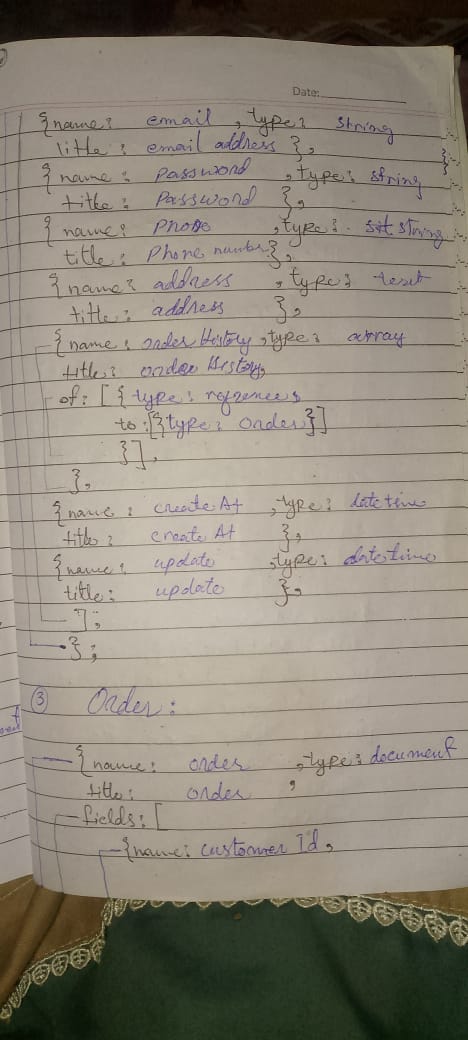 Date:
{name: email , type: string
title: email address },
{name: Password , type: string
title: Password },
{name: Phone , type: string
title: Phone number },
{name: address , type: text
title: address },
{name: order History , type: array
title: order History,
of: [{type: reference
to: [{type: order}]
}],
},
{name: createAt , type: datetime
title: create At },
{name: update , type: datetime
title: update },
],
};
③ Order:
{name: order , type: document
title: order ,
fields: [
{name: customer Id,